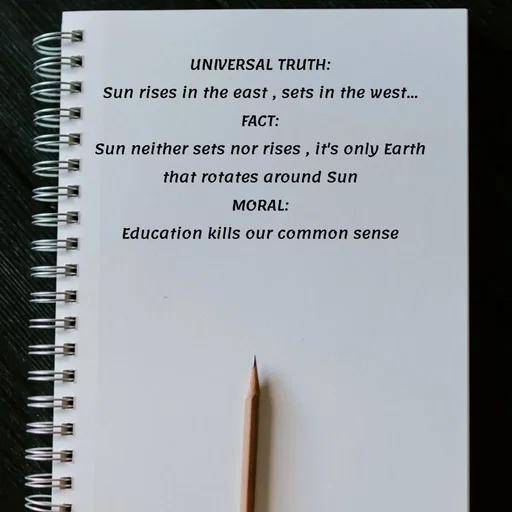 UNIVERSAL TRUTH:
Sun rises in the east , sets in the west...
FACT:
Sun neither sets nor rises , it's only Earth
that rotates around Sun
MORAL:
Education kills our common sense